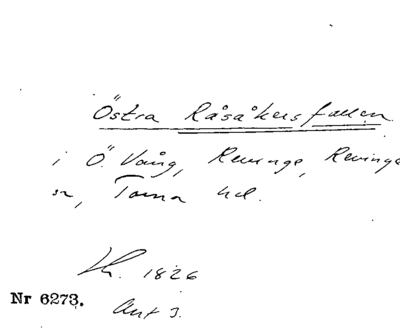 Östra Råsåkersfallen
i Ö. Vång, Revinge, Revinge
sn, Torna hd.
Lk. 1826
Nr 6273.
Akt 3.